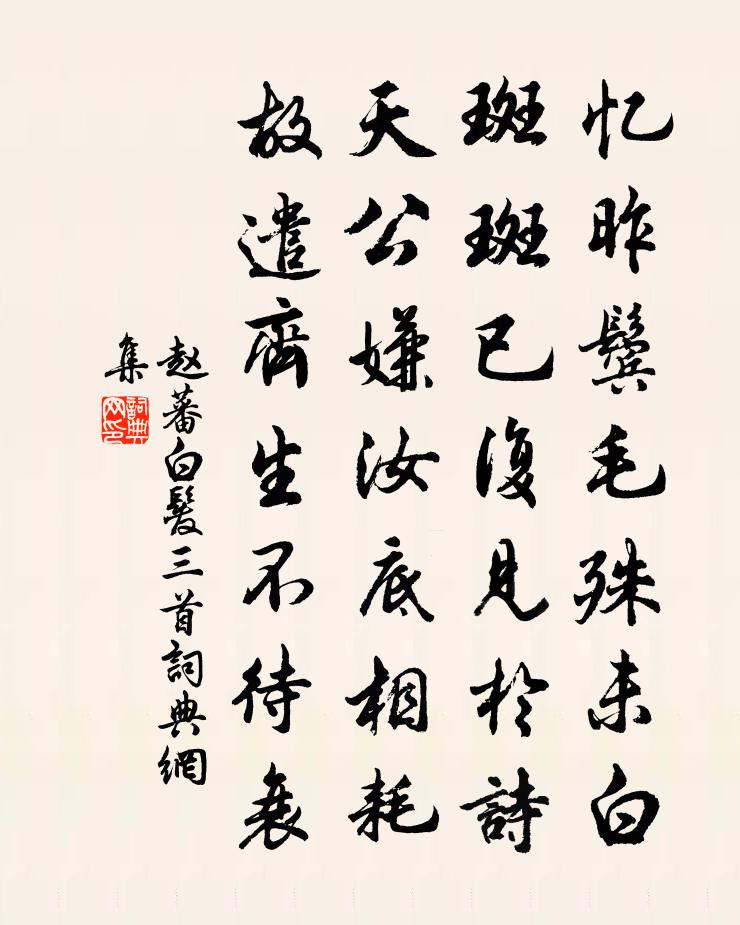 忆昨鬓毛殊未白
斑斑已復見於詩
天公嫌汝底相耗
故遣齊生不待衰
赵蕃白髮三首詞典網
集
詞典
网印